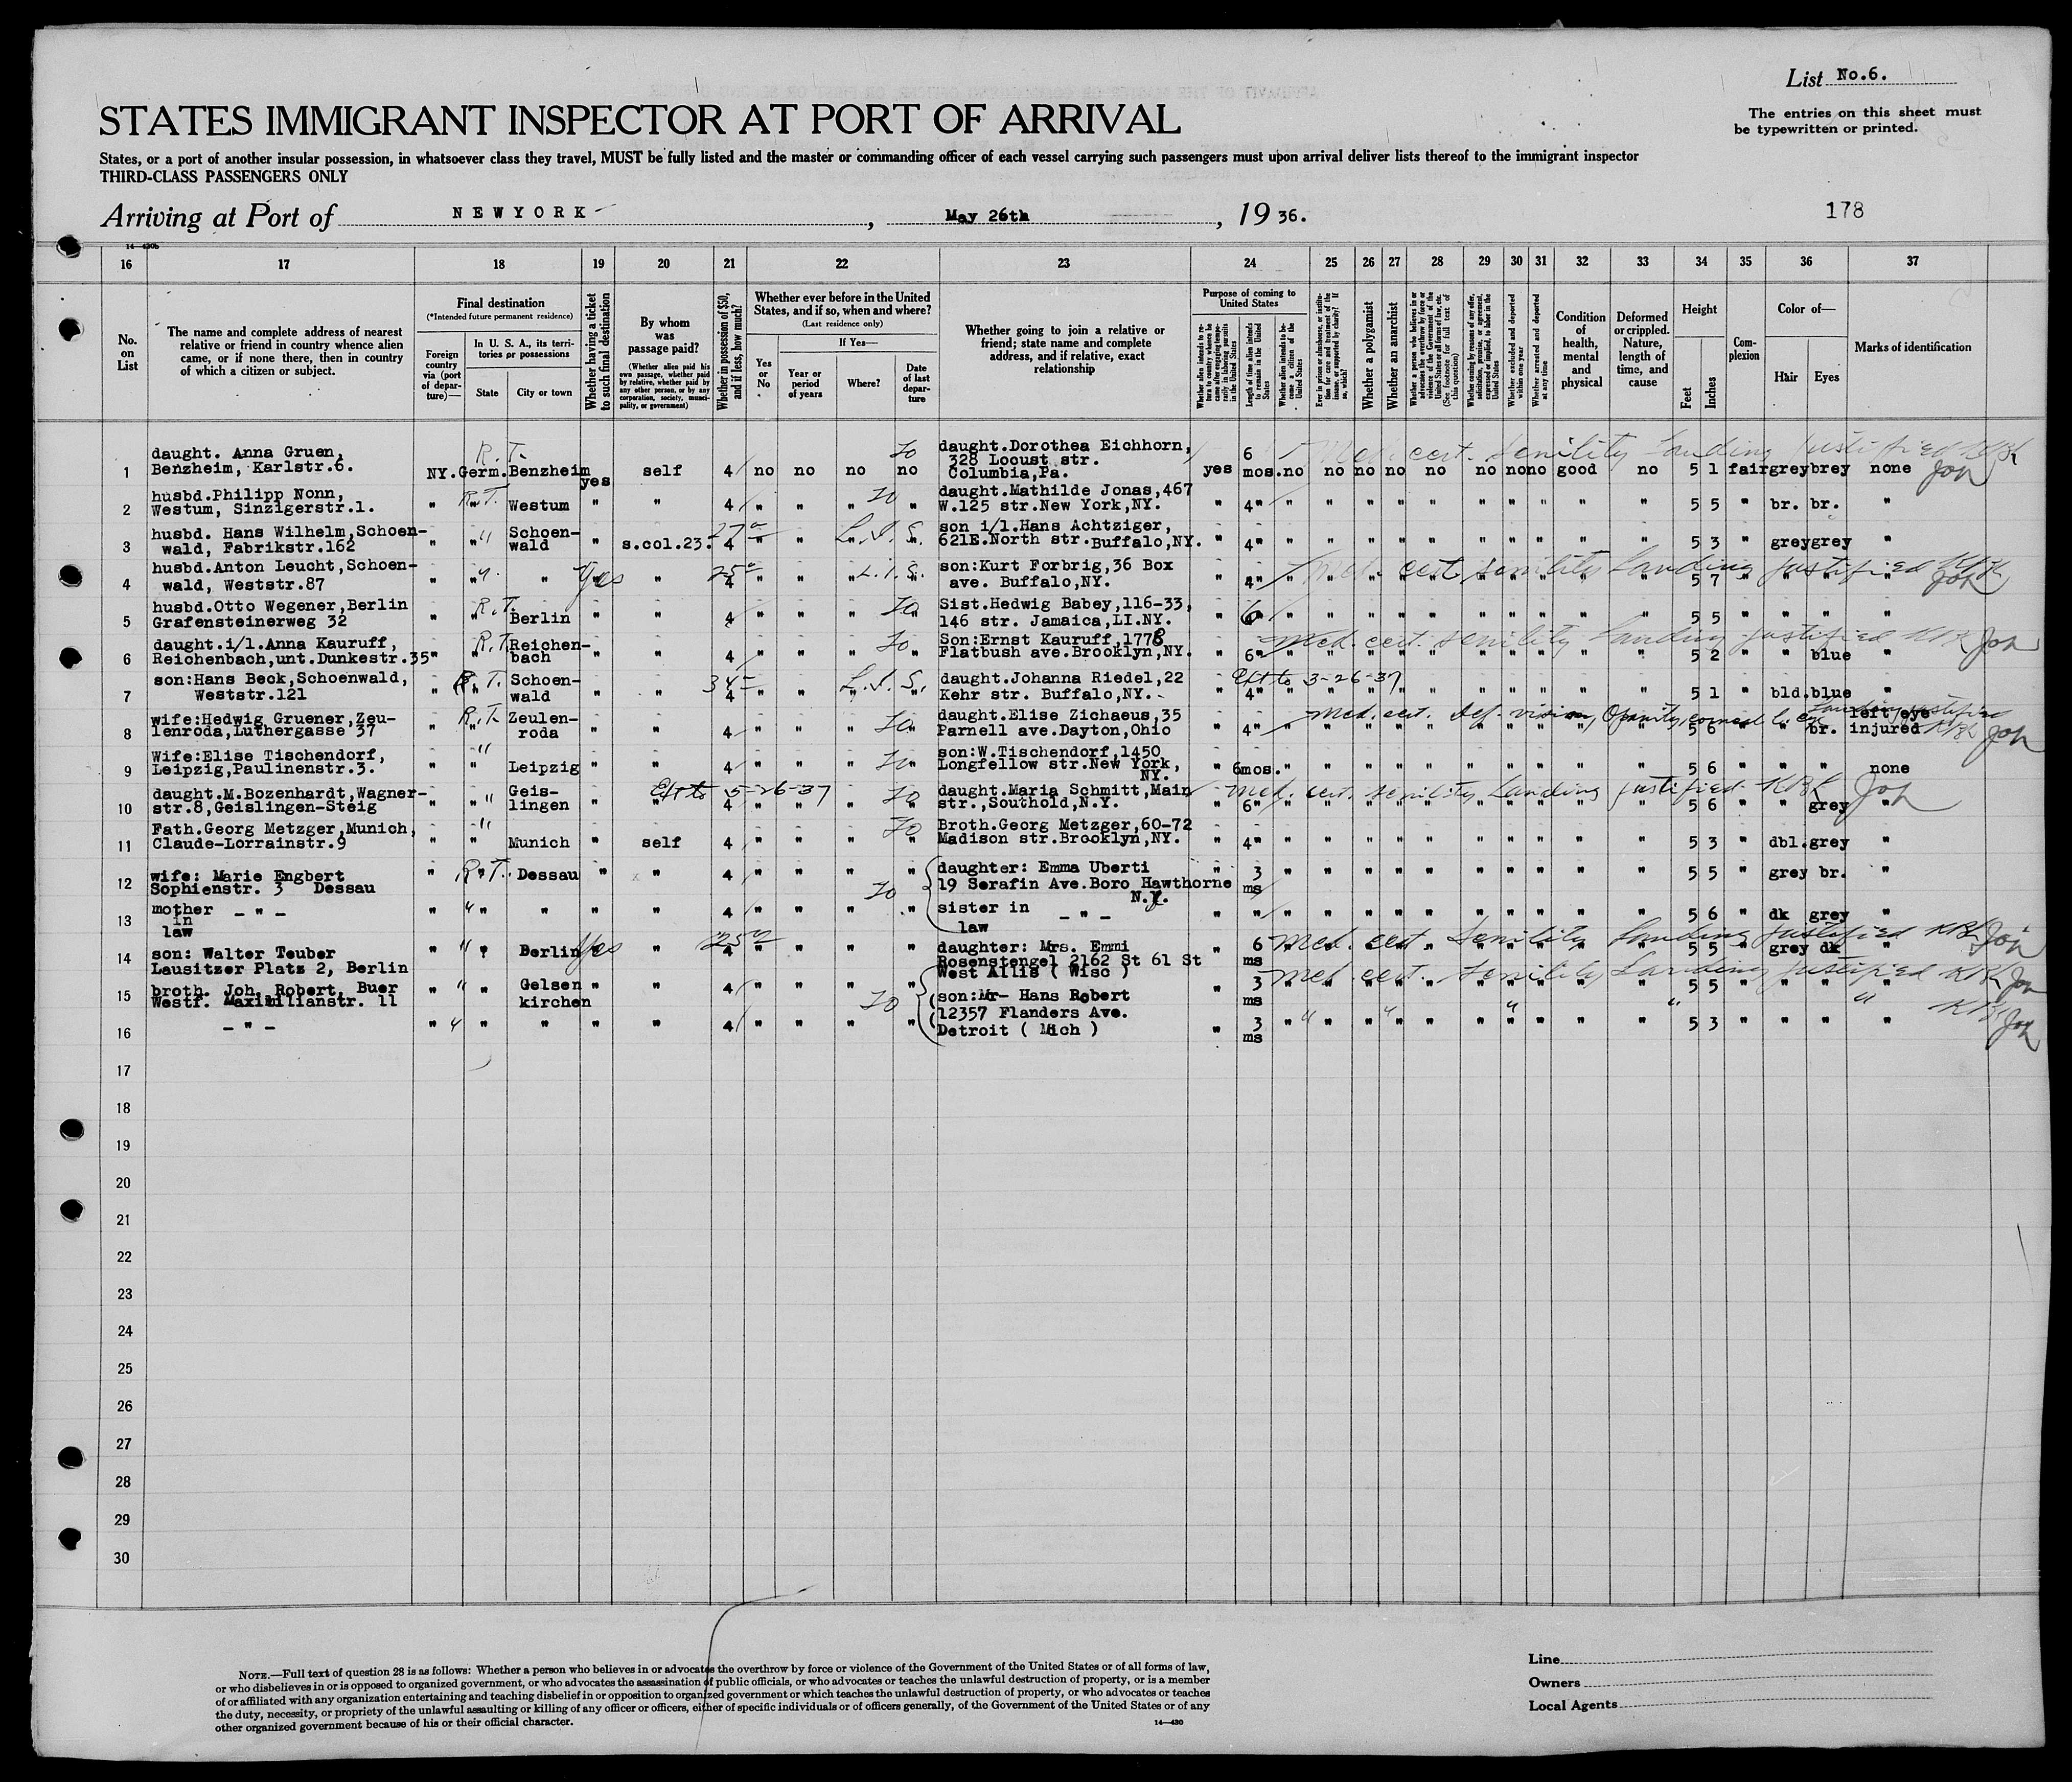 List No.6.
STATES IMMIGRANT INSPECTOR AT PORT OF ARRIVAL
The entries on this sheet must
be typewritten or printed.
States, or a port of another insular possession, in whatsoever class they travel, MUST be fully listed and the master or commanding officer of each vessel carrying such passengers must upon arrival deliver lists thereof to the immigrant inspector
THIRD-CLASS PASSENGERS ONLY
Arriving at Port of NEWYORK, May 26th, 1936.
178
14—430b
16 17 18 19 20 21 22 23 24 25 26 27 28 29 30 31 32 33 34 35 36 37
No. on List
The name and complete address of nearest
relative or friend in country whence alien
came, or if none there, then in country
of which a citizen or subject.
Final destination
(*Intended future permanent residence)
Foreign country via (port of departure)—
In U. S. A., its territories or possessions
State
City or town
Whether having a ticket to such final destination
By whom was passage paid?
(Whether alien paid his own passage, whether paid by relative, whether paid by any other person, or by any corporation, society, municipality, or government)
Whether in possession of $50, and if less, how much?
Whether ever before in the United
States, and if so, when and where?
(Last residence only)
If Yes—
Yes or No
Year or period of years
Where?
Date of last departure
Whether going to join a relative or
friend; state name and complete
address, and if relative, exact
relationship
Purpose of coming to
United States
Length of time alien intends to remain in the United States
Whether alien intends to become a citizen of the United States
Whether a polygamist
Whether an anarchist
Whether excluded and deported within one year
Whether arrested and deported at any time
Condition of health, mental and physical
Deformed or crippled. Nature, length of time, and cause
Height
Feet
Inches
Complexion
Color of—
Hair
Eyes
Marks of identification
1 daught. Anna Gruen,
Benzheim, Karlstr.6. NY. Germ. R.T. Benzheim yes self 4 no no no no daught.Dorothea Eichhorn,
328 Locust str.
Columbia,Pa. yes 6 mos. no no no no no no no no good no 5 1 fair grey brey none
Med. cert. senility Landing justified
2 husbd.Philipp Nonn,
Westum, Sinzigerstr.1. " R.T. " Westum " " 4 " " " " daught.Mathilde Jonas,467
W.125 str.New York,NY. " 4" " " " " " " " " " " 5 5 " br. br. "
3 husbd. Hans Wilhelm,Schoen-
wald, Fabrikstr.162 " " Schoen-
wald " s.col.23. 4 " " " " son i/l.Hans Achtziger,
621E.North str.Buffalo,NY. " 4" " " " " " " " " " " 5 3 " grey grey "
4 husbd.Anton Leucht,Schoen-
wald, Weststr.87 " " " Yes " 4 " " " " son:Kurt Forbrig,36 Box
ave. Buffalo,NY. " 4" " " " " " " " " " " 5 7 " " " "
Med. cert. senility Landing justified
5 husbd.Otto Wegener,Berlin
Grafensteinerweg 32 " R.T. " Berlin " " 4 " " " " Sist.Hedwig Babey,116-33,
146 str. Jamaica,LI.NY. " 6" " " " " " " " " " " 5 5 " " " "
6 daught.i/l.Anna Kauruff,
Reichenbach,unt.Dunkestr.35 " R.T. " Reichen-
bach " " 4 " " " " Son:Ernst Kauruff,1778
Flatbush ave.Brooklyn,NY. " 6" " " " " " " " " " " 5 2 " " blue "
Med. cert. senility Landing justified
7 son:Hans Beck,Schoenwald,
Weststr.121 " R.T. " Schoen-
wald " " 4 " " " " daught.Johanna Riedel,22
Kehr str. Buffalo,NY. " 4" " " " " " " " " " " 5 1 " bld. blue "
Ext to 3-26-37
8 wife:Hedwig Gruener,Zeu-
lenroda,Luthergasse 37 " R.T. " Zeulen-
roda " " 4 " " " " daught.Elise Zichaeus,35
Parnell ave.Dayton,Ohio " 4" " " " " " " " " " " 5 6 " " br. left eye
injured
Med. cert. Def. vision, Landing justified
9 Wife:Elise Tischendorf,
Leipzig,Paulinenstr.3. " " Leipzig " " 4 " " " " son:W.Tischendorf,1450
Longfellow str.New York,
NY. " 6mos. " " " " " " " " " " 5 6 " " " none
10 daught.M.Bozenhardt,Wagner-
str.8,Geislingen-Steig " " Geis-
lingen " " 4 " " " " daught.Maria Schmitt,Main
str.,Southold,N.Y. " 6" " " " " " " " " " " 5 6 " " grey "
Ext to 5-26-37
Med. cert. senility Landing justified
11 Fath.Georg Metzger,Munich,
Claude-Lorrainstr.9 " " Munich " self 4 " " " " Broth.Georg Metzger,60-72
Madison str.Brooklyn,NY. " 4" " " " " " " " " " " 5 3 " dbl. grey "
12 wife: Marie Engbert
Sophienstr. 3 Dessau " R.T. Dessau " " 4 " " " " daughter: Emma Uberti
19 Serafin Ave.Boro Hawthorne
N.Y. " 3 ms " " " " " " " " " " 5 5 " grey br. "
13 mother — " —
in
law " " " " 4 " " " " sister in — " —
law " " " " " " " " " " " " 5 6 " dk grey "
14 son: Walter Teuber
Lausitzer Platz 2, Berlin " " Berlin Yes " 4 " " " " daughter: Mrs. Emmi
Rosenstengel 2162 St 61 St
West Allis ( Wisc ) " 6 ms " " " " " " " " " " 5 5 " grey dk "
Med. cert. Senility Landing justified
15 broth. Joh. Robert, Buer
Westf. Maximilianstr. 11 " " Gelsen
kirchen " " 4 " " " " son:Mr- Hans Robert
12357 Flanders Ave.
Detroit ( Mich ) " 3 ms " " " " " " " " " " 5 5 " " " "
Med. cert. Senility Landing justified
16 — " — " " " " " 4 " " " " " 3 ms " " " " " " " " " " 5 3 " " " "
17
18
19
20
21
22
23
24
25
26
27
28
29
30
NOTE.—Full text of question 28 is as follows: Whether a person who believes in or advocates the overthrow by force or violence of the Government of the United States or of all forms of law,
or who disbelieves in or is opposed to organized government, or who advocates the assassination of public officials, or who advocates or teaches the unlawful destruction of property, or is a member
of or affiliated with any organization entertaining and teaching disbelief in or opposition to organized government or which teaches the unlawful destruction of property, or who advocates or teaches
the duty, necessity, or propriety of the unlawful assaulting or killing of any officer or officers, either of specific individuals or of officers generally, of the Government of the United States or of any
other organized government because of his or their official character.
14—430
Line
Owners
Local Agents